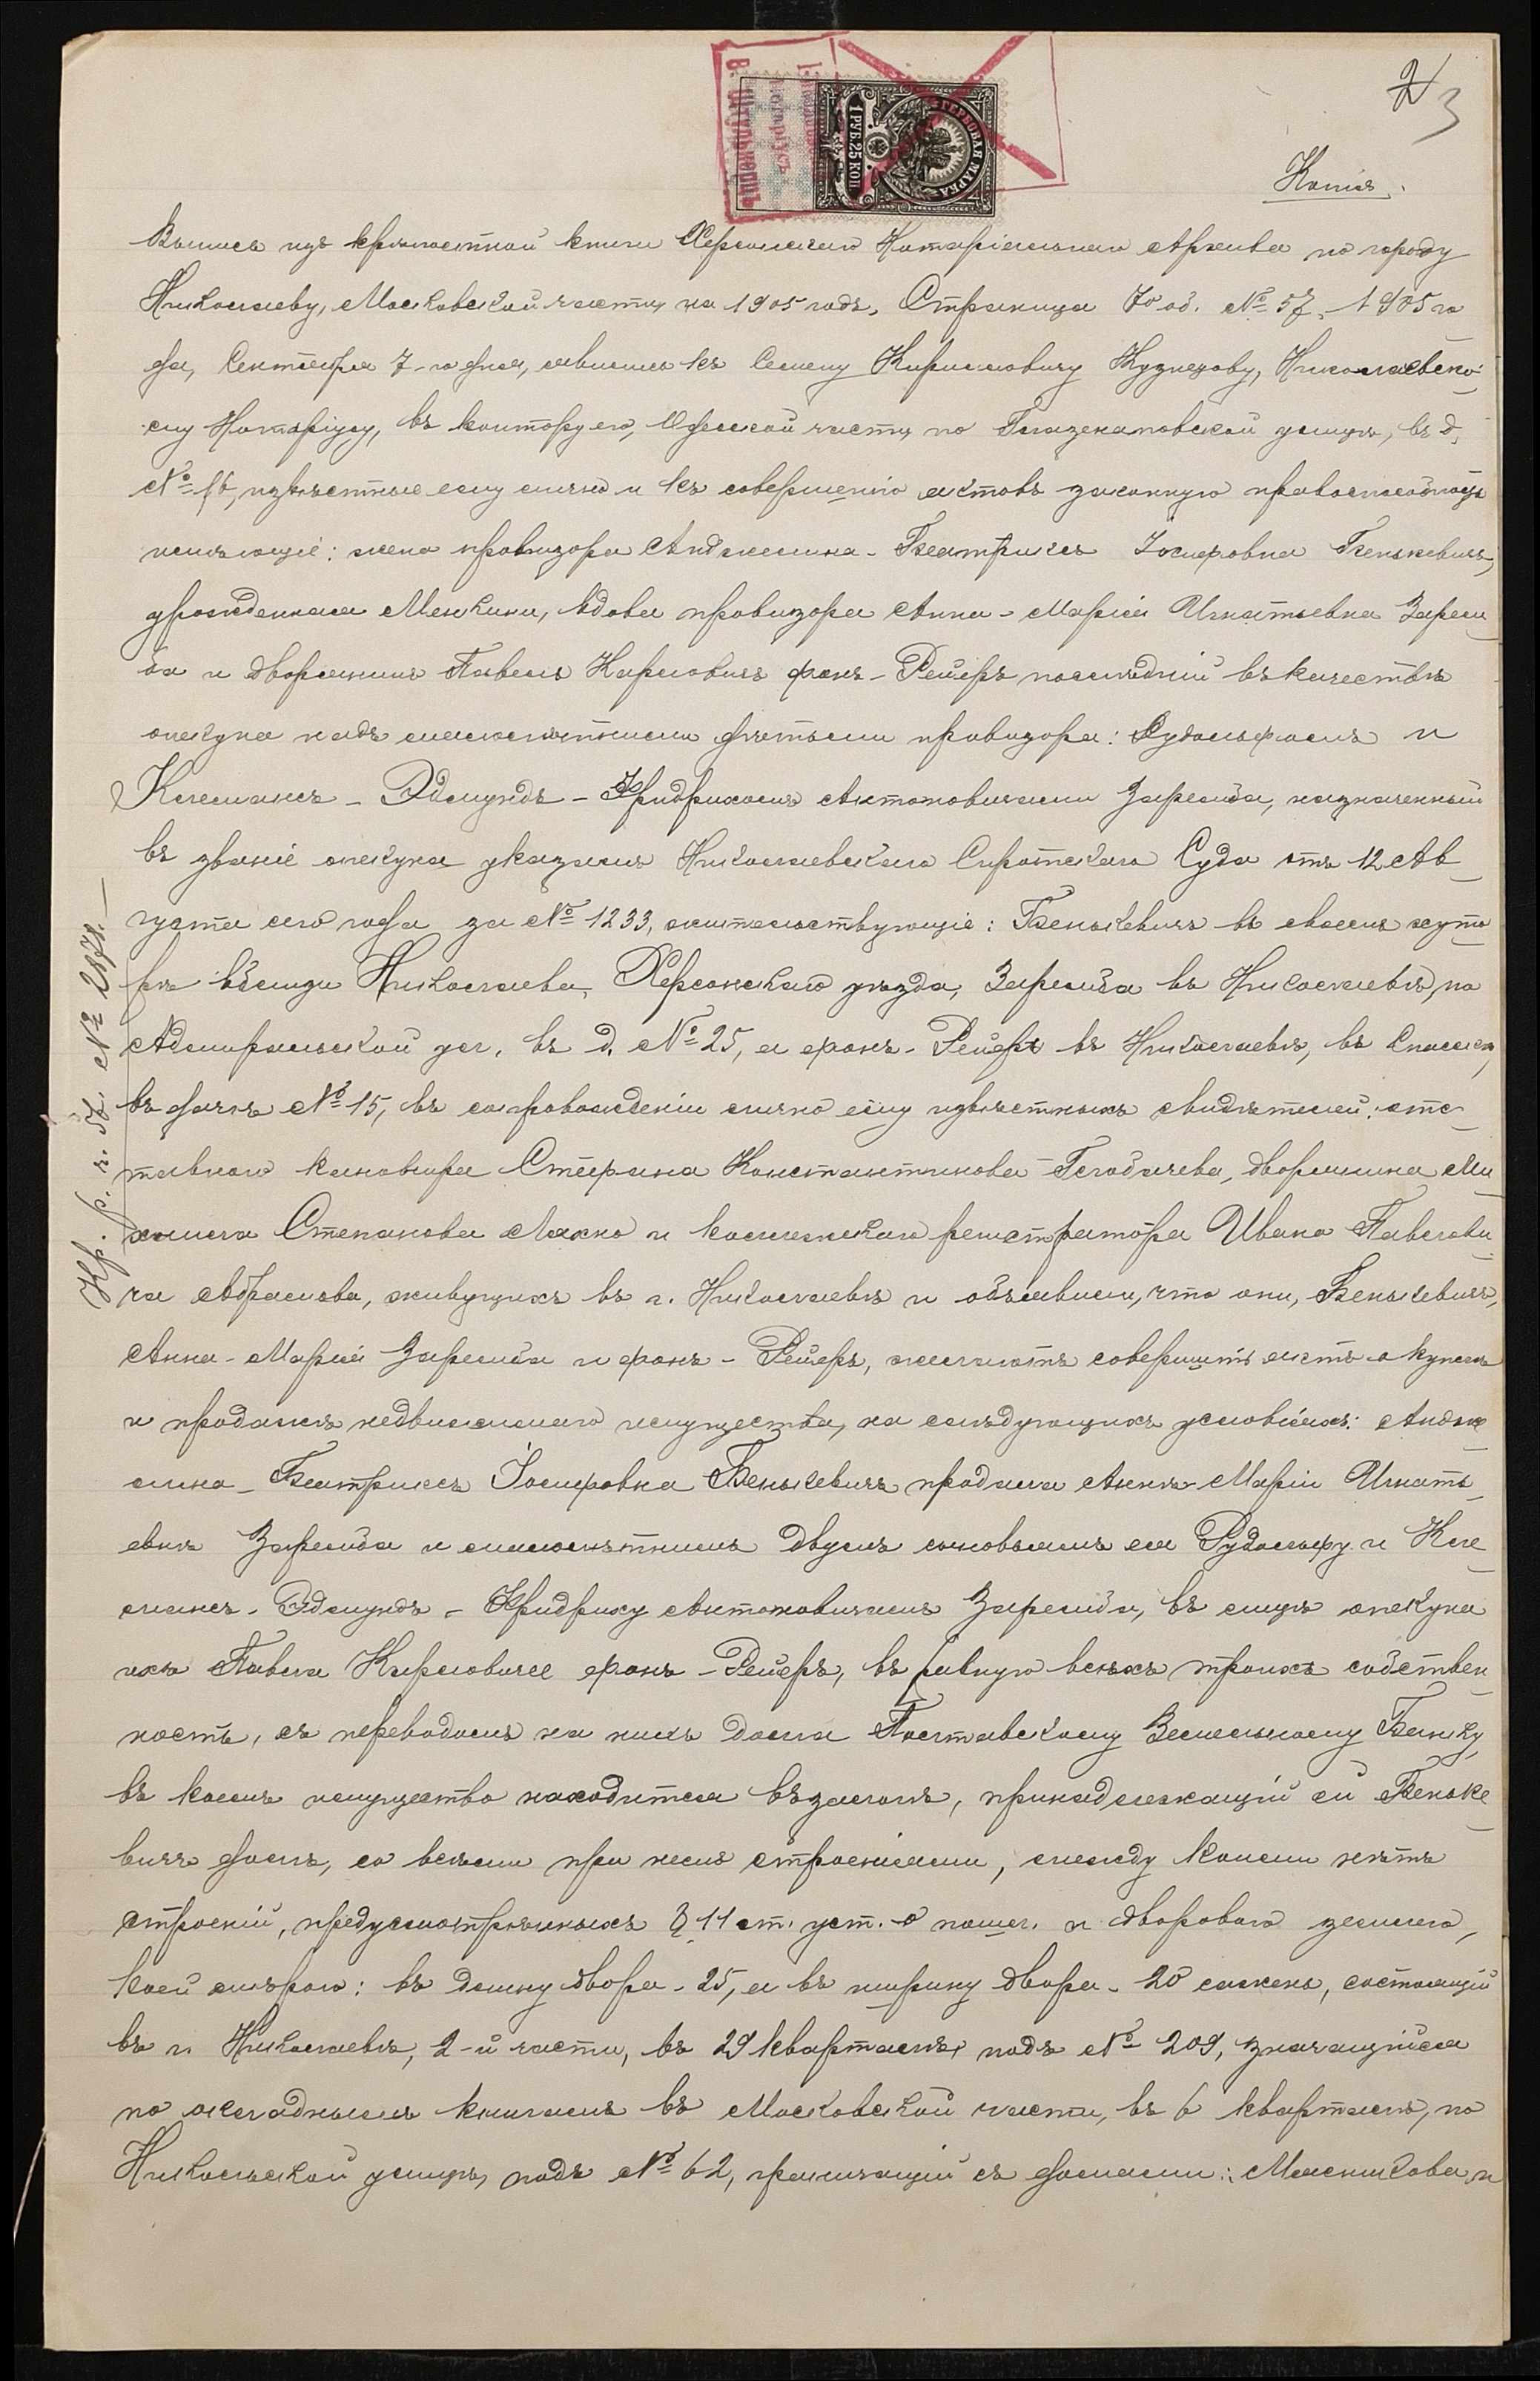 2 3
ГЕРБОВАЯ МАРКА
1 РУБ. 25 КОП.
Копія.
Выпись изъ крѣпостной книги Херсонскаго Нотаріальнаго Архива по городу
Николаеву, Московской части, на 1905 годъ, Страница 70 об. № 57. 1905 го
да, Сентября 7-го дня, явились къ Семену Кирилловичу Кузнецову, Николаевско-
му Нотаріусу, въ контору его, Одесской части, по Глазенаповской улицѣ, въ д.
№ 16, извѣстные ему лично и къ совершенію актовъ законную правоспособность
имѣющіе: жена провизора Анджелина-Беатриче Іосифовна Бенькевичъ,
урожденная Менчини, вдова провизора Анна-Марія Игнатьевна Заремба
ба и дворянинъ Павелъ Карловичъ фонъ-Рейеръ, послѣдній въ качествѣ
опекуна надъ малолѣтними дѣтьми провизора: Рудольфомъ и
Клеманъ-Эдмундъ-Фридрихомъ Антоновичами Заремба, назначенный
въ званіе опекуна указомъ Николаевскаго Сиротскаго Суда отъ 12 Ав-
густа сего года за № 1233, жительствующіе: Бенькевичъ въ своемъ хуто-
рѣ вблизи Николаева, Херсонскаго уѣзда, Заремба въ Николаевѣ, по
Адмиральской ул. въ д. № 25, а фонъ-Рейеръ въ Николаевѣ, въ Спасскѣ,
въ дачѣ № 15, въ сопровожденіи лично ему извѣстныхъ свидѣтелей: отс-
тавного Стефана Константинова Голодачева, дворянина Ми-
хаила Степанова Махно и коллежскаго регистратора Ивана Павлови-
ча Абрамова, живущихъ въ г. Николаевѣ и объявили, что они, Бенькевичъ,
Анна-Марія Заремба и фонъ-Рейеръ, желаютъ совершить актъ о куплѣ
и продажѣ недвижимаго имущества, на слѣдующихъ условіяхъ: Андже-
лина-Беатриче Іосифовна Бенькевичъ продала Аннѣ-Маріи Игнать-
евнѣ Заремба и малолѣтнимъ двумъ сыновьямъ ея Рудольфу и Кле-
манъ-Эдмундъ-Фридриху Антоновичамъ Заремба, въ лицѣ опекуна
ихъ Павла Карловича фонъ-Рейеръ, въ равную всѣхъ троихъ собствен-
ность, съ переводомъ на нихъ долга Полтавскому Земельному Банку,
въ коемъ имущество находится въ залогѣ, принадлежащій ей Беньке-
вичъ домъ, со всѣми при немъ строеніями, между коими нѣтъ
строеній, предусмотрѣнныхъ § 11 ст. уст. о пошл. и дворового землею,
коей мѣрою: въ длину двора - 25, а въ ширину двора - 20 сажень, состоящій
въ г. Николаевѣ, 2-й части, въ 29 кварталѣ, подъ № 209, значащійся
по окладнымъ книгамъ въ Московской части, въ 6 кварталѣ, по
Никольской улицѣ, подъ № 62, граничащій съ домами: Мясникова и
Кр. р. г. № 2871.